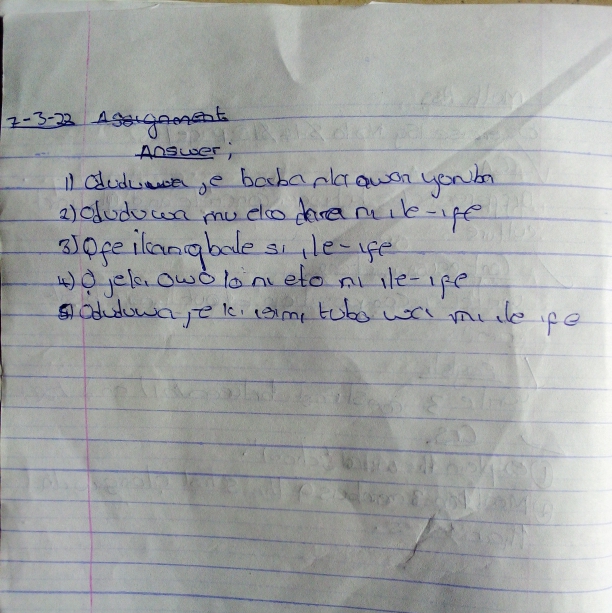 7-3-22 Assignment
Answer;
1) Oduduwa je baba nla awon yoruba
2) Oduduwa mu eko dara ni ile-ife
3) Ofe ikangbale si ile-ife
4) O jeki owo lo ni eto ni ile-ife
5) Oduduwa je ki isimi tubo wa ni ile ife